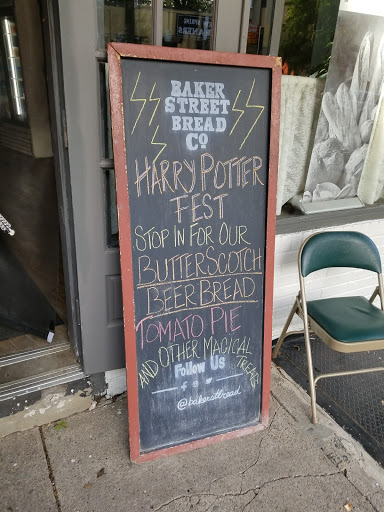 BAKER
STREET
BREAD
CO
HARRY POTTER
FEST
STOP IN FOR OUR
BUTTERSCOTCH
BEER BREAD
TOMATO PIE
AND OTHER MAGICAL TREATS
Follow Us
@bakerstbread